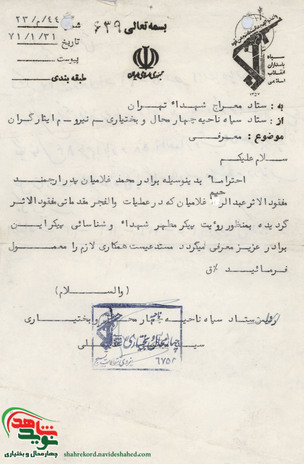 بسمه تعالی
۶۳۹
شماره ۲۳/م/۴۴
تاریخ ۷۱/۱/۳۱
پیوست
طبقه بندی
سپاه
پاسداران
انقلاب
اسلامی
به : ستاد معراج شهداء تهران
از : ستاد سپاه ناحیه چهارمحال و بختیاری ـ م نیرو ـ م ایثارگران
موضوع : معرفی
سلام علیکم
احتراما" بدینوسیله برادر محمد غلامیان پدر ارجمند
مفقودالاثر عبدالرحیم غلامیان که در عملیات والفجر مقدماتی مفقودالاثر
گردیده بمنظور رؤیت پیکر مطهر شهداء و شناسائی پیکر این
برادر عزیز معرفی میگردد مستدعیست همکاری لازم را مبذول
فرمائید
( والسلام )
ستاد سپاه ناحیه چهارمحال و بختیاری
۶۷۵۲
نوید شاهد
چهارمحال و بختیاری
shahrekord.navideshahed.com